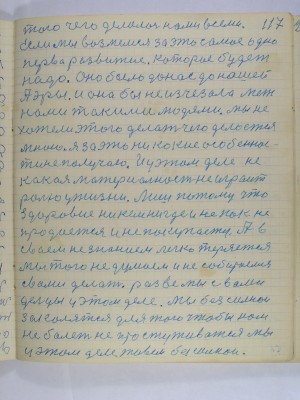 того чего делалось нами всеми. 117
Если мы возмемся за это самое одно
перва развитие. Которие будет
надо. Оно было до нас до нашей
Эры. и она бы не изчезала меж
нами такими людями. мы не
хотем этого делать чего делается
мною. я за это ни какие особеннос-
ти не получаю. И у этом деле не
какая материалность не играит
ролю у жизни. Лиш потому что
здоровие ни кем нигде и не как не
продается и не покупается. А в
своем незнанием легко теряется
мы того не думаем и не собираемся
с вами делать. разве мы с вами
у этом деле. Мы без силои
закалятся для того чтобы нам
не балеть не простуживатся мы
у этом деле живем бесилои.